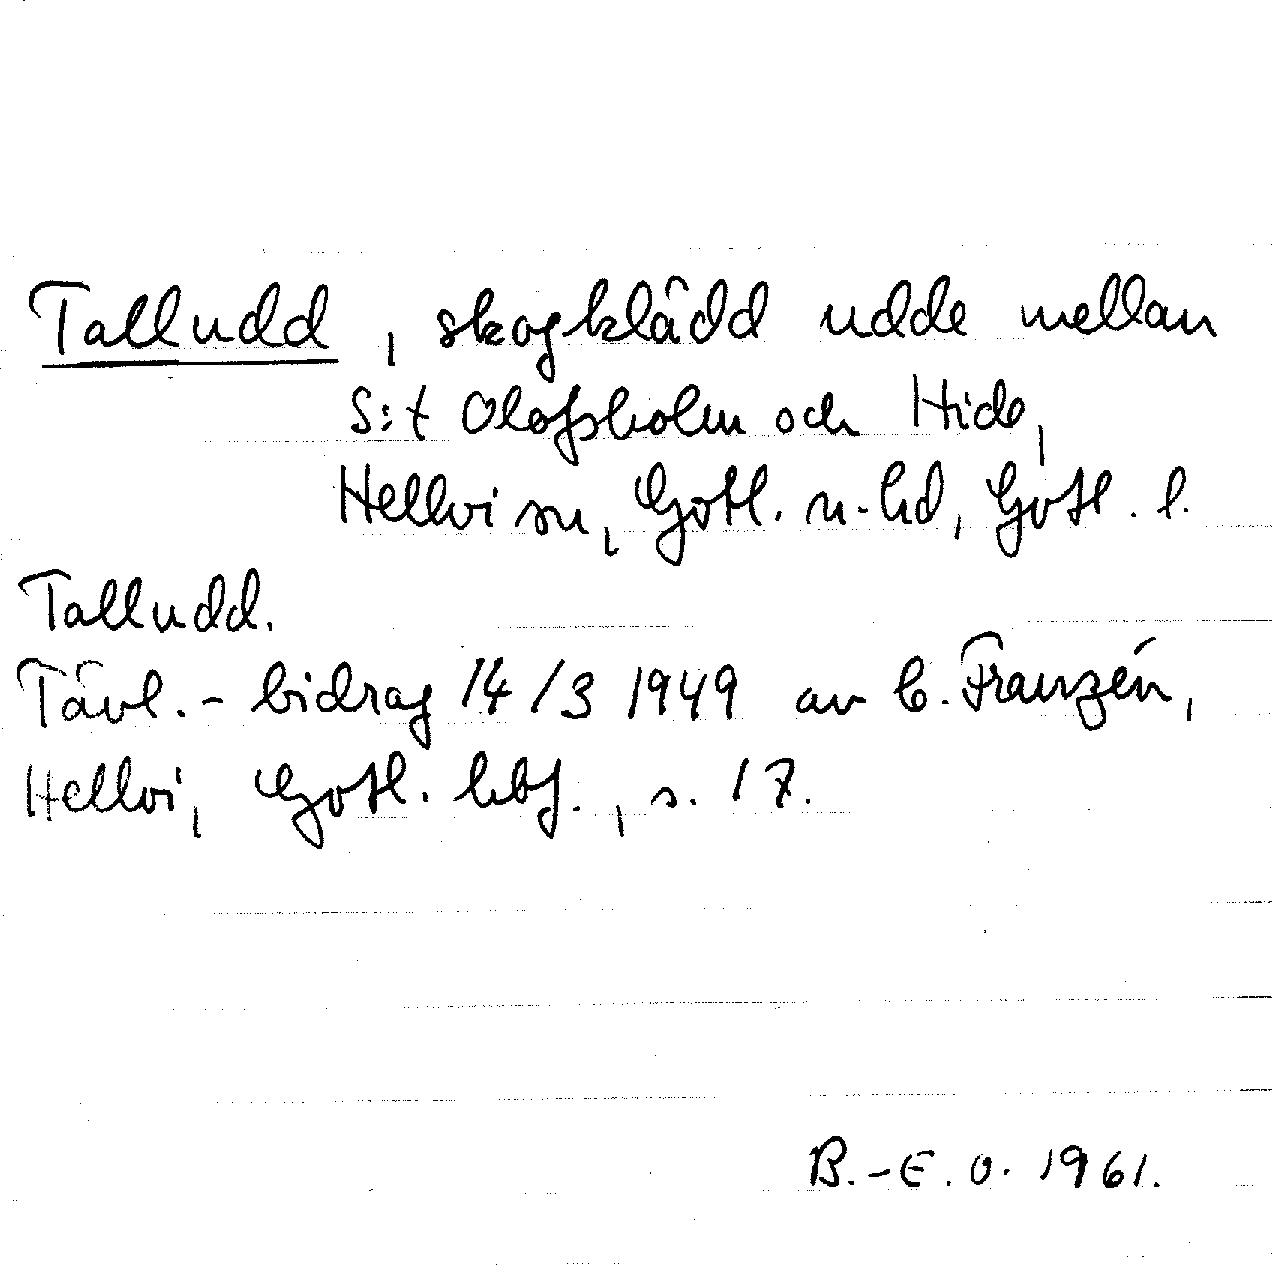 Talludd, skogklädd udde mellan
S:t Olofsholm och Hide,
Hellvi sn, Gotl. n. hd, Gotl. l.
Talludd.
Tävl.-bidrag 14/3 1949 av C. Franzén,
Hellvi, Gotl. hbf., s. 17.
B.-E. O. 1961.